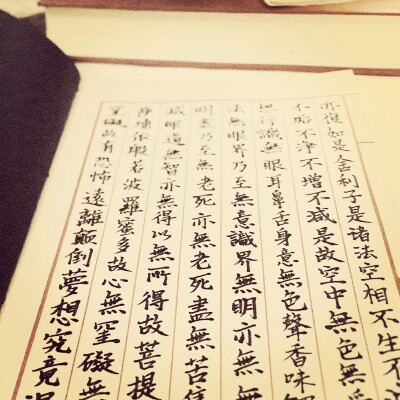 亦復如是舍利子是諸法空相不生不
不垢不淨不增不減是故空中無色無受
想行識無眼耳鼻舌身意無色聲香味觸
法無眼界乃至無意識界無明亦無無
明盡乃至無老死亦無老死盡無苦集
滅眼道無智亦無得以無所得故菩提
薩埵依般若波羅蜜多故心無罣礙無
罣礙故有恐怖遠離顛倒夢想究竟涅